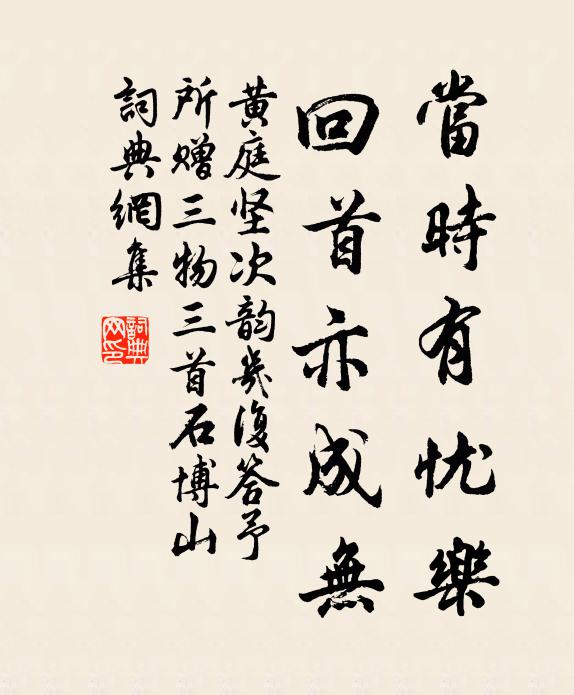 當時有忧樂
回首亦成無
黄庭坚次韵㡬復答予
所赠三物三首石博山
詞典網集
詞典网印